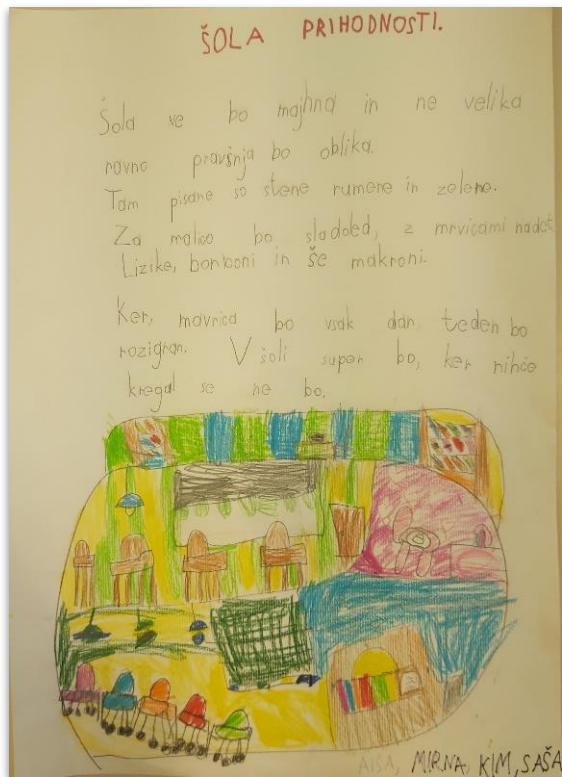 ŠOLA PRIHODNOSTI.
Šola ne bo majhna in ne velika
ravno pravšnja bo oblika.
Tam pisane so stene rumene in zelene.
Za malico bo sladoled, z mrvicami
Lizike, bonboni in še makroni.
Ker, mavrica bo vsak dan, teden bo
rozigran. V šoli super bo, ker nihče
kregal se ne bo.
AJŠA, MIRNA, KIM, SAŠA